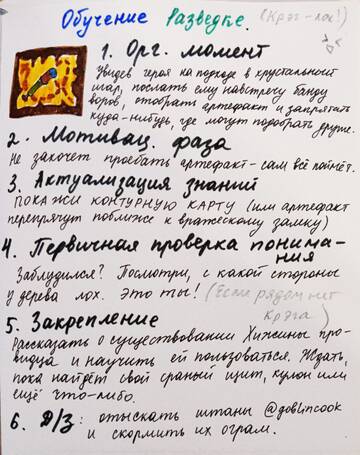 Обучение Разведке.
(Крэг - лох!)
1. Орг. момент
Увидев героя на подходе в хрустальный
шар, послать ему навстречу банду
воров, отобрать артефакт и запрятить
куда-нибудь, где могут подобрать другие.
2. Мотивац. фаза
Не захочет проебать артефакт - сам всё поймёт.
3. Актуализация знаний
ПОКАЖИ КОНТУРНУЮ КАРТУ (или артефакт
перепрячут поближе к вражескому замку)
4. Первичная проверка понима-
ния
Заблудился? Посмотри, с какой стороны
у дерева лох. Это ты! (Если рядом нет
Крэга)
5. Закрепление
Рассказать о существовании Хижины про-
видца и научить ей пользоваться. Ждать,
пока найдёт свой сраный щит, кулон или
ещё что-либо.
6. Д/З: отыскать штаны @goblincook
и скормить их ограм.